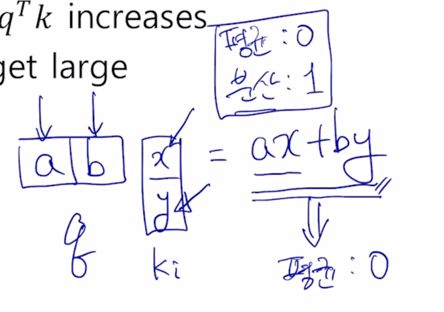 qᵀk increases
get large
평균 : 0
분산 : 1
a b x y = ax+by
q ki
평균 : 0